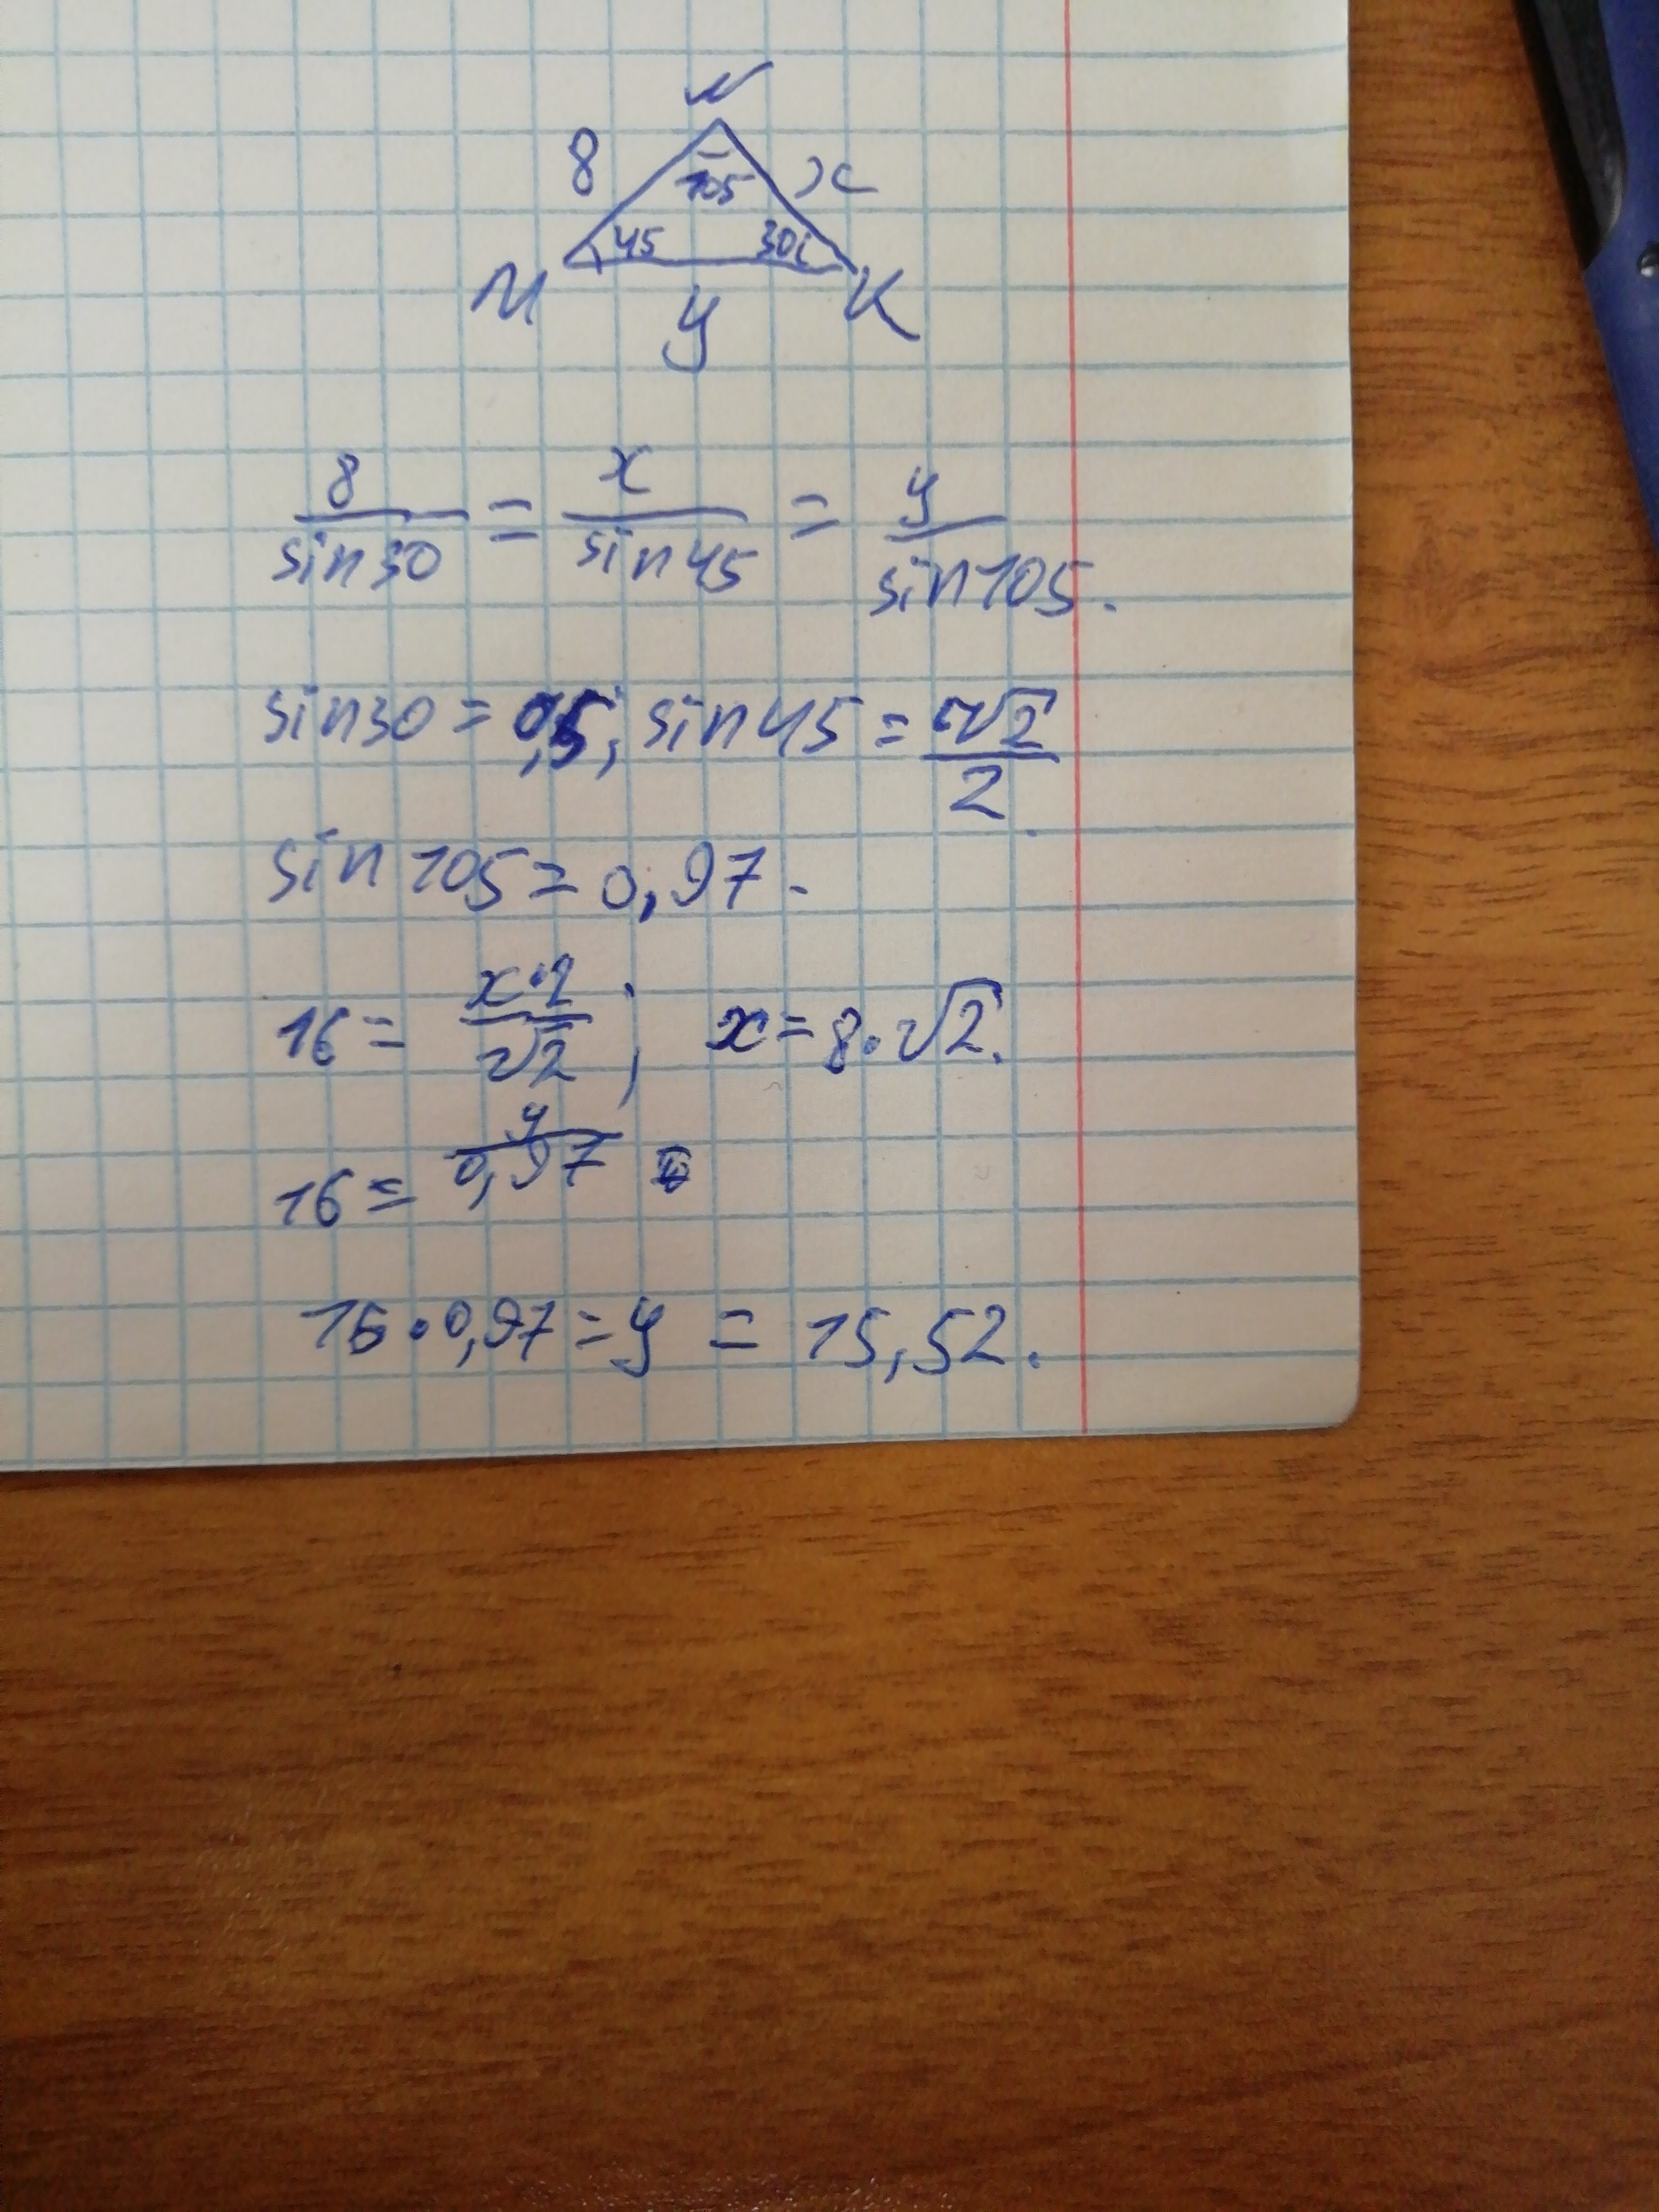 N
8 105 x
45 30
M y K
8/sin30 = x/sin45 = y/sin105.
sin30 = 0,5; sin45 = √2/2
sin105 = 0,97.
16 = x·2/√2; x = 8·√2.
16 = y/0,97
16·0,97 = y = 15,52.